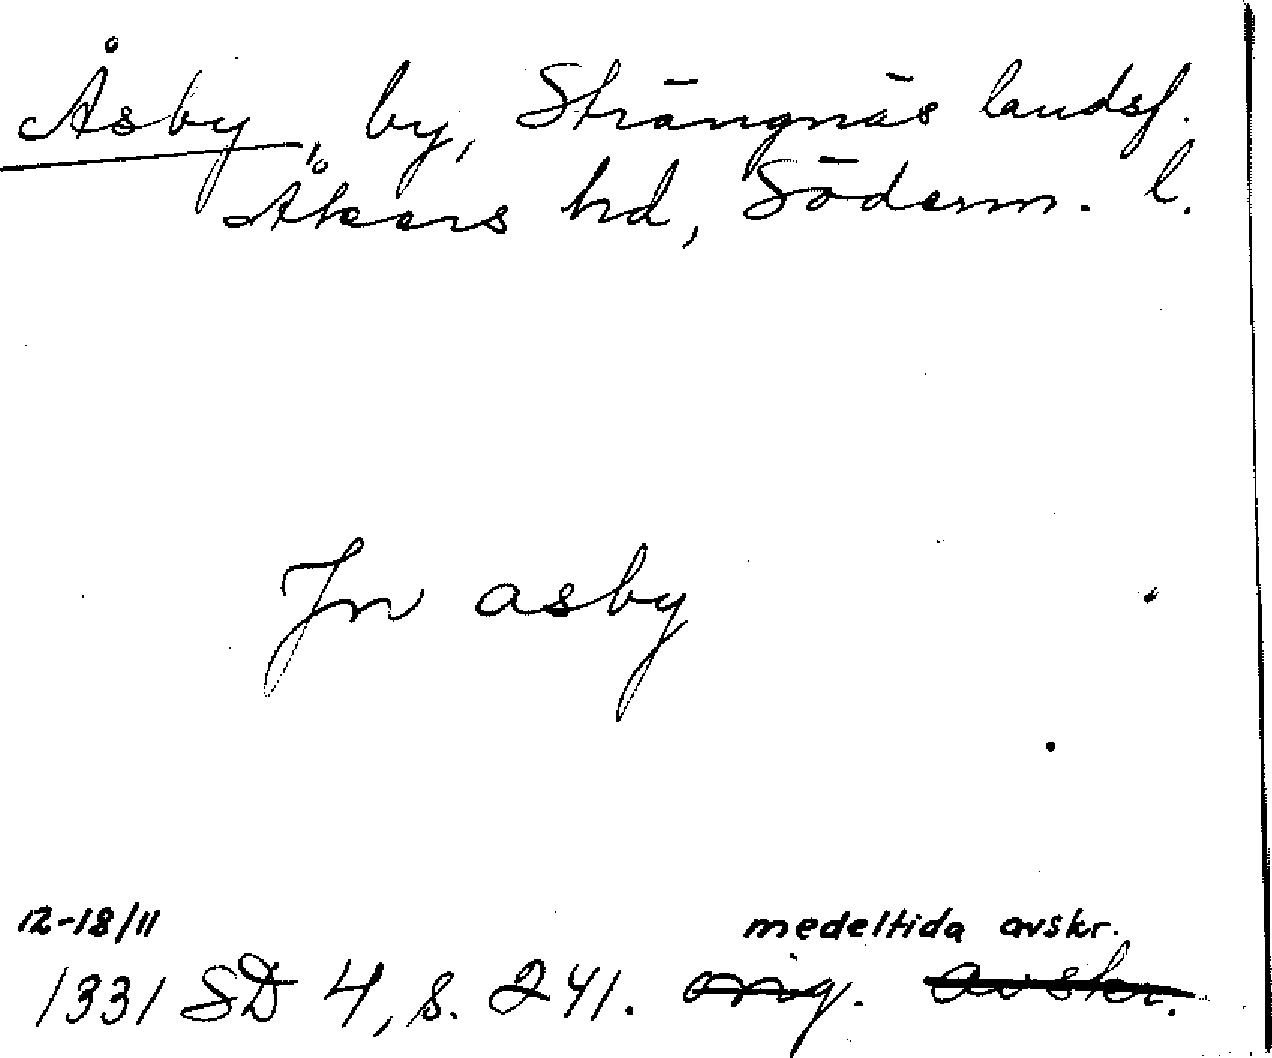 Åsby, by, Strängnäs landsf.
Åkers hd, Söderm. l.
Jn asby
12-18/11
medeltida avskr.
1331 SD 4, s. 241. orig. avskr.